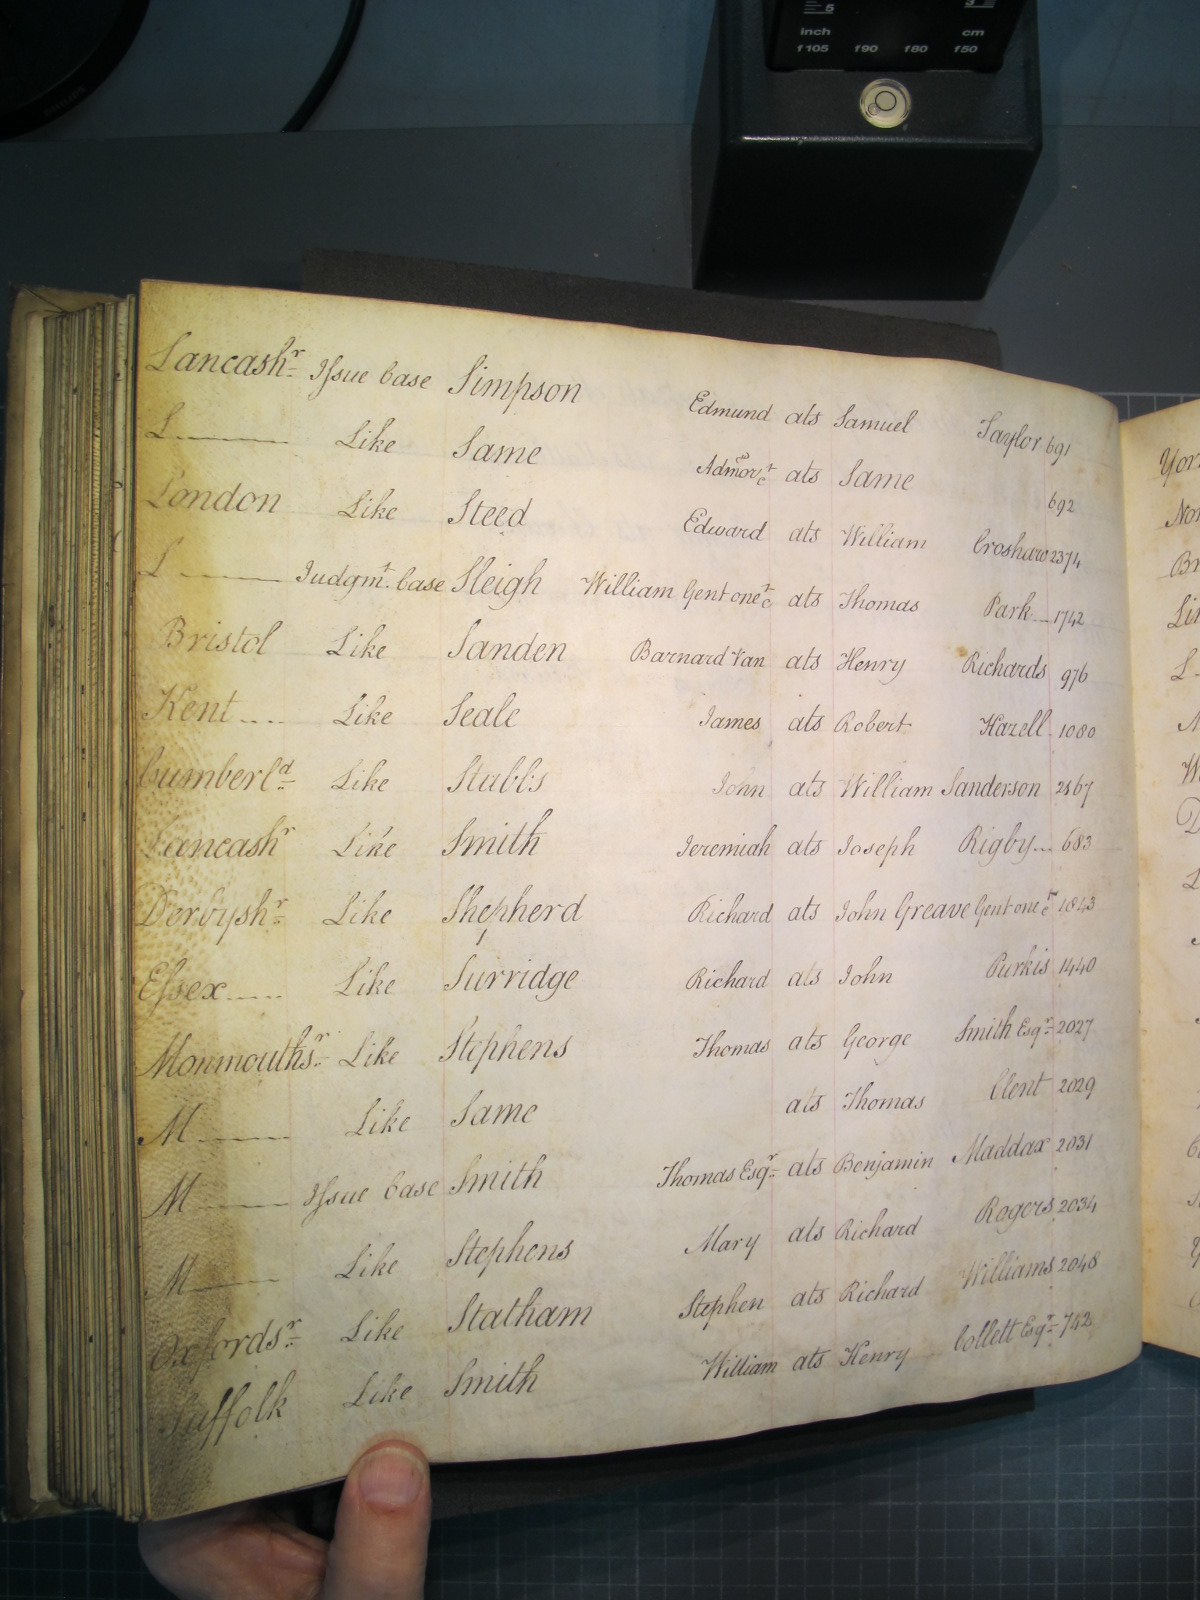 5 3
inch cm
f105 f90 f80 f50
Lancashr Issue Case Simpson Edmund ats Samuel Taylor 691
L Like Same Admorct ats Same 692
London Like Steed Edward ats William Croshaw 2374
L Judgmt. Case Sleigh William Gent one &c ats Thomas Park 1742
Bristol Like Sanden Barnard Van ats Henry Richards 976
Kent Like Seale James ats Robert Hazell 1080
Cumberld Like Stubbs John ats William Sanderson 2467
Lancashr Like Smith Jeremiah ats Joseph Rigby 683
Derbyshr Like Shepherd Richard ats John Greave Gent one &c 1843
Essex Like Surridge Richard ats John Purkis 1440
Monmouthsr Like Stephens Thomas ats George Smith Esqr 2027
M Like Same ats Thomas Clent 2029
M Issue Case Smith Thomas Esqr ats Benjamin Maddax 2031
M Like Stephens Mary ats Richard Rogers 2034
Oxfordsr Like Statham Stephen ats Richard Williams 2048
Suffolk Like Smith William ats Henry Collett Esqr 742